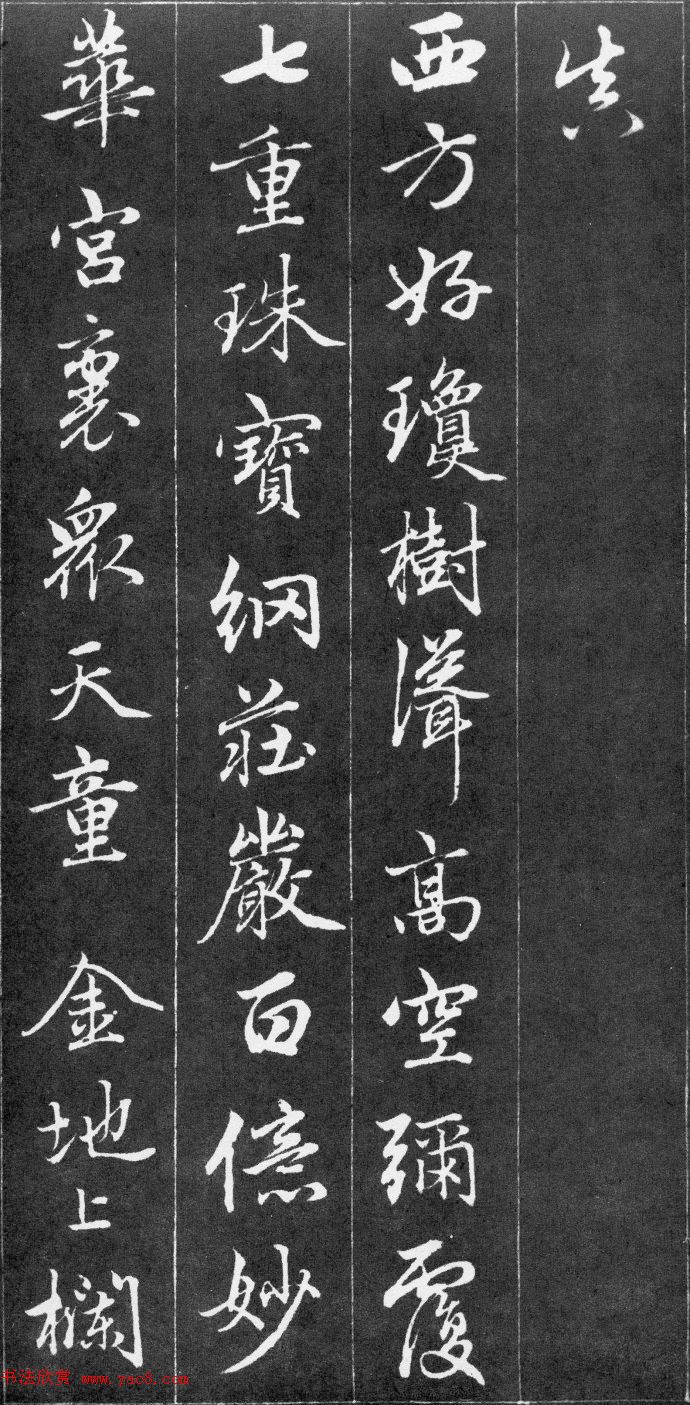 真
西方好瓊樹聳高空彌覆
七重珠寶網莊嚴百億妙
華宮裏衆天童 金地上欄
书法欣赏 www.yac8.com